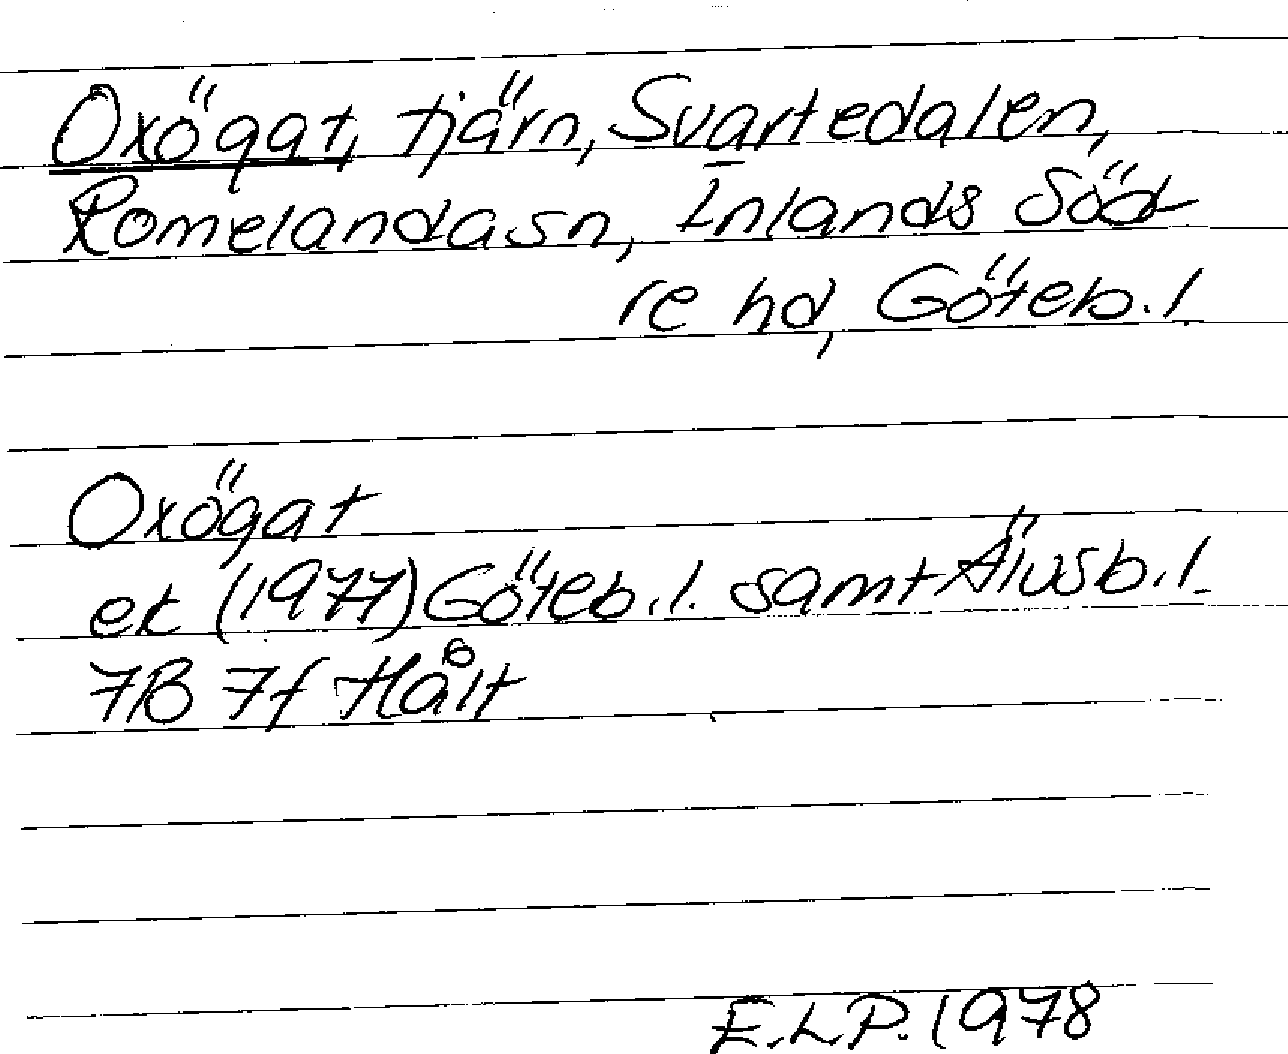 Oxögat, tjärn, Svartedalen,
Romelandasn, Inlands Söd
re hd, Göteb. l
Oxögat
ek (1977) Göteb. l. samt Älvsb. l.
7B 7f Hålt
E.L.P. 1978